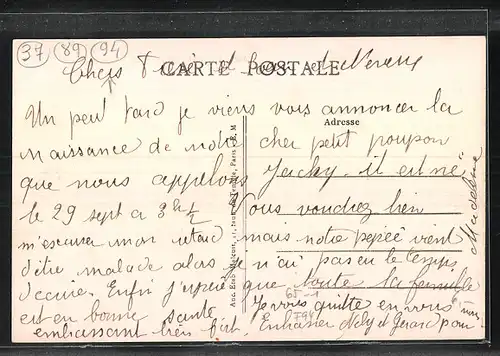 37 89 94
Chers
CARTE POSTALE
Un peu tard je viens vous annoncer la
Adresse
naissance de notre cher petit poupon
que nous appelons Jacky. il est né
le 29 sept a 3h 1/2 Vous voudrez bien
m'excuser mon retard mais notre pepée vient
d'être malade alors je n'ai pas eu le temps
d'ecrire. Enfin j'espère que toute la famille
est en bonne sante Je vous quitte en vous
embrassant bien fort. Embrasser Nely et Gerard pour
Madeleine